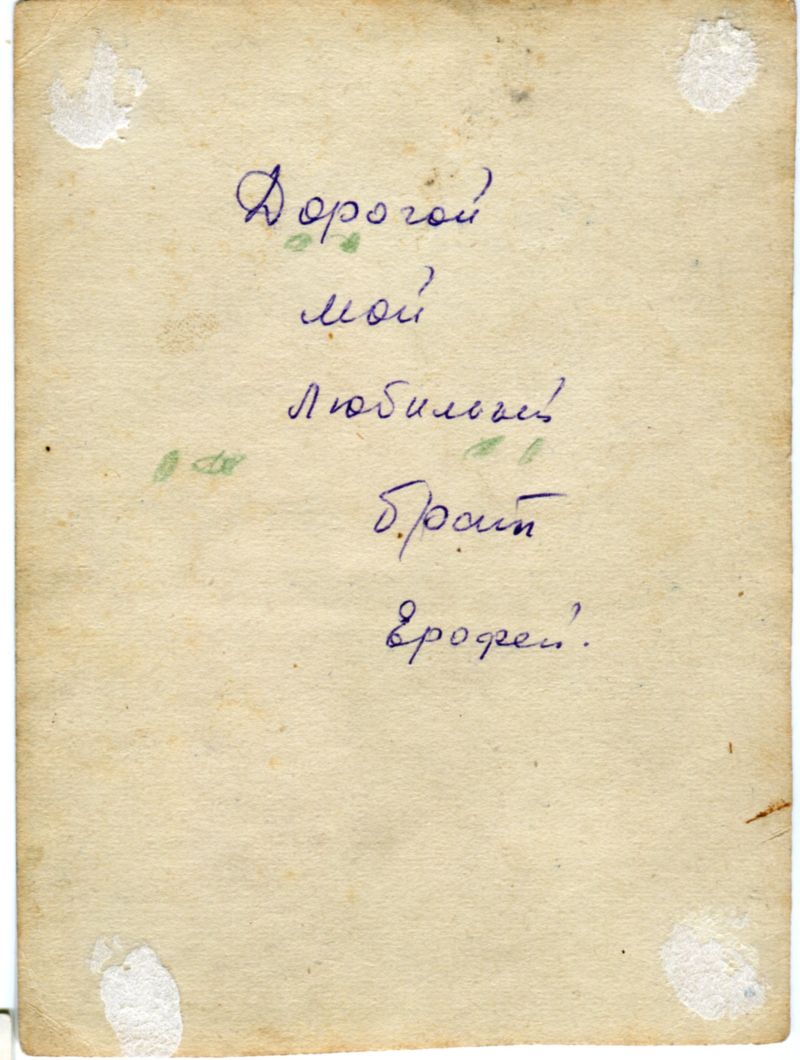 Дорогой
мой
любимый
брат
Ерофей.